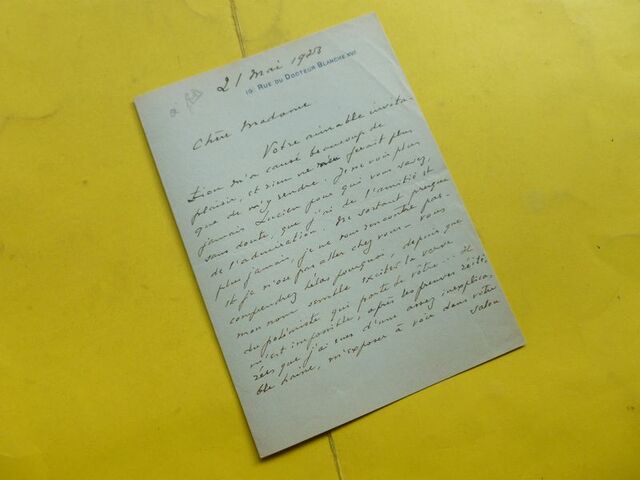 21 Mai 1923
19, RUE DU DOCTEUR BLANCHE. XVI
Chère Madame
Votre aimable invita-
tion m'a causé beaucoup de
plaisir, et rien ne me ferait plus
que de m'y rendre. Je ne vois plus
jamais Lucien pour qui vous savez,
sans doute, que j'ai de l'amitié et
de l'admiration. Ne sortant presque
plus jamais, je ne vous rencontre pas -
et je n'ose pas aller chez vous - vous
comprendrez hélas pourquoi, depuis que
mon nom semble exciter la verve
du polémiste qui porte le vôtre... Il
m'est impossible, après les preuves réité-
rées que j'ai eues d'une assez inexplica-
ble haine, m'exposer à voir dans votre
salon